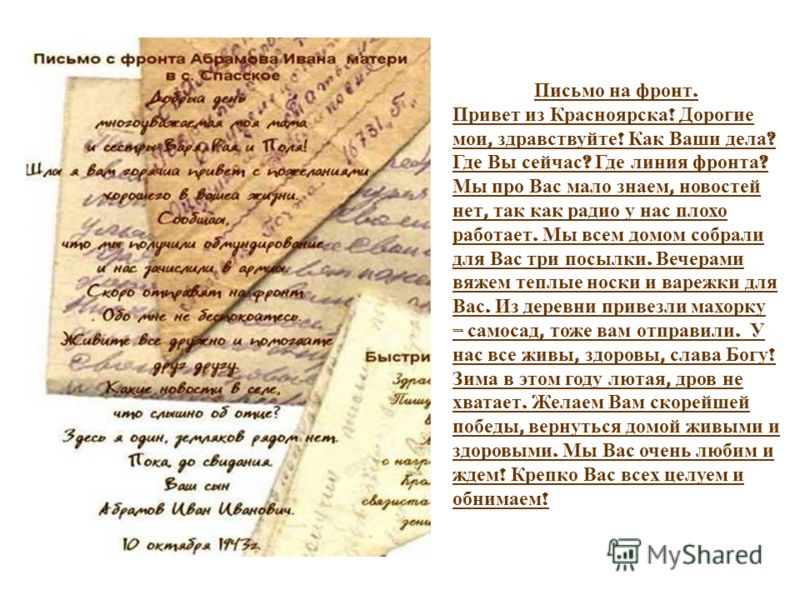 Письмо с фронта Абрамова Ивана матери
в с. Спасское
Добрый день
многоуважаемая моя мама
и сестры Варя, Рая и Поля!
Шлю я вам горячий привет с пожеланиями
хорошего в вашей жизни.
Сообщаю,
что мы получили обмундирование
и нас зачислили в армию.
Скоро отправят на фронт.
Обо мне не беспокоитесь.
Живите все дружно и помогайте
друг другу.
Какие новости в селе,
что слышно об отце?
Здесь я один, земляков рядом нет.
Пока, до свидания.
Ваш сын
Абрамов Иван Иванович.
10 октября 1943г.
16731
Быстри
Здрав
Пишу
в
с нагр
Кра
связиста
зени
Письмо на фронт.
Привет из Красноярска! Дорогие
мои, здравствуйте! Как Ваши дела?
Где Вы сейчас? Где линия фронта?
Мы про Вас мало знаем, новостей
нет, так как радио у нас плохо
работает. Мы всем домом собрали
для Вас три посылки. Вечерами
вяжем теплые носки и варежки для
Вас. Из деревни привезли махорку
– самосад, тоже вам отправили. У
нас все живы, здоровы, слава Богу!
Зима в этом году лютая, дров не
хватает. Желаем Вам скорейшей
победы, вернуться домой живыми и
здоровыми. Мы Вас очень любим и
ждем! Крепко Вас всех целуем и
обнимаем!
MyShared